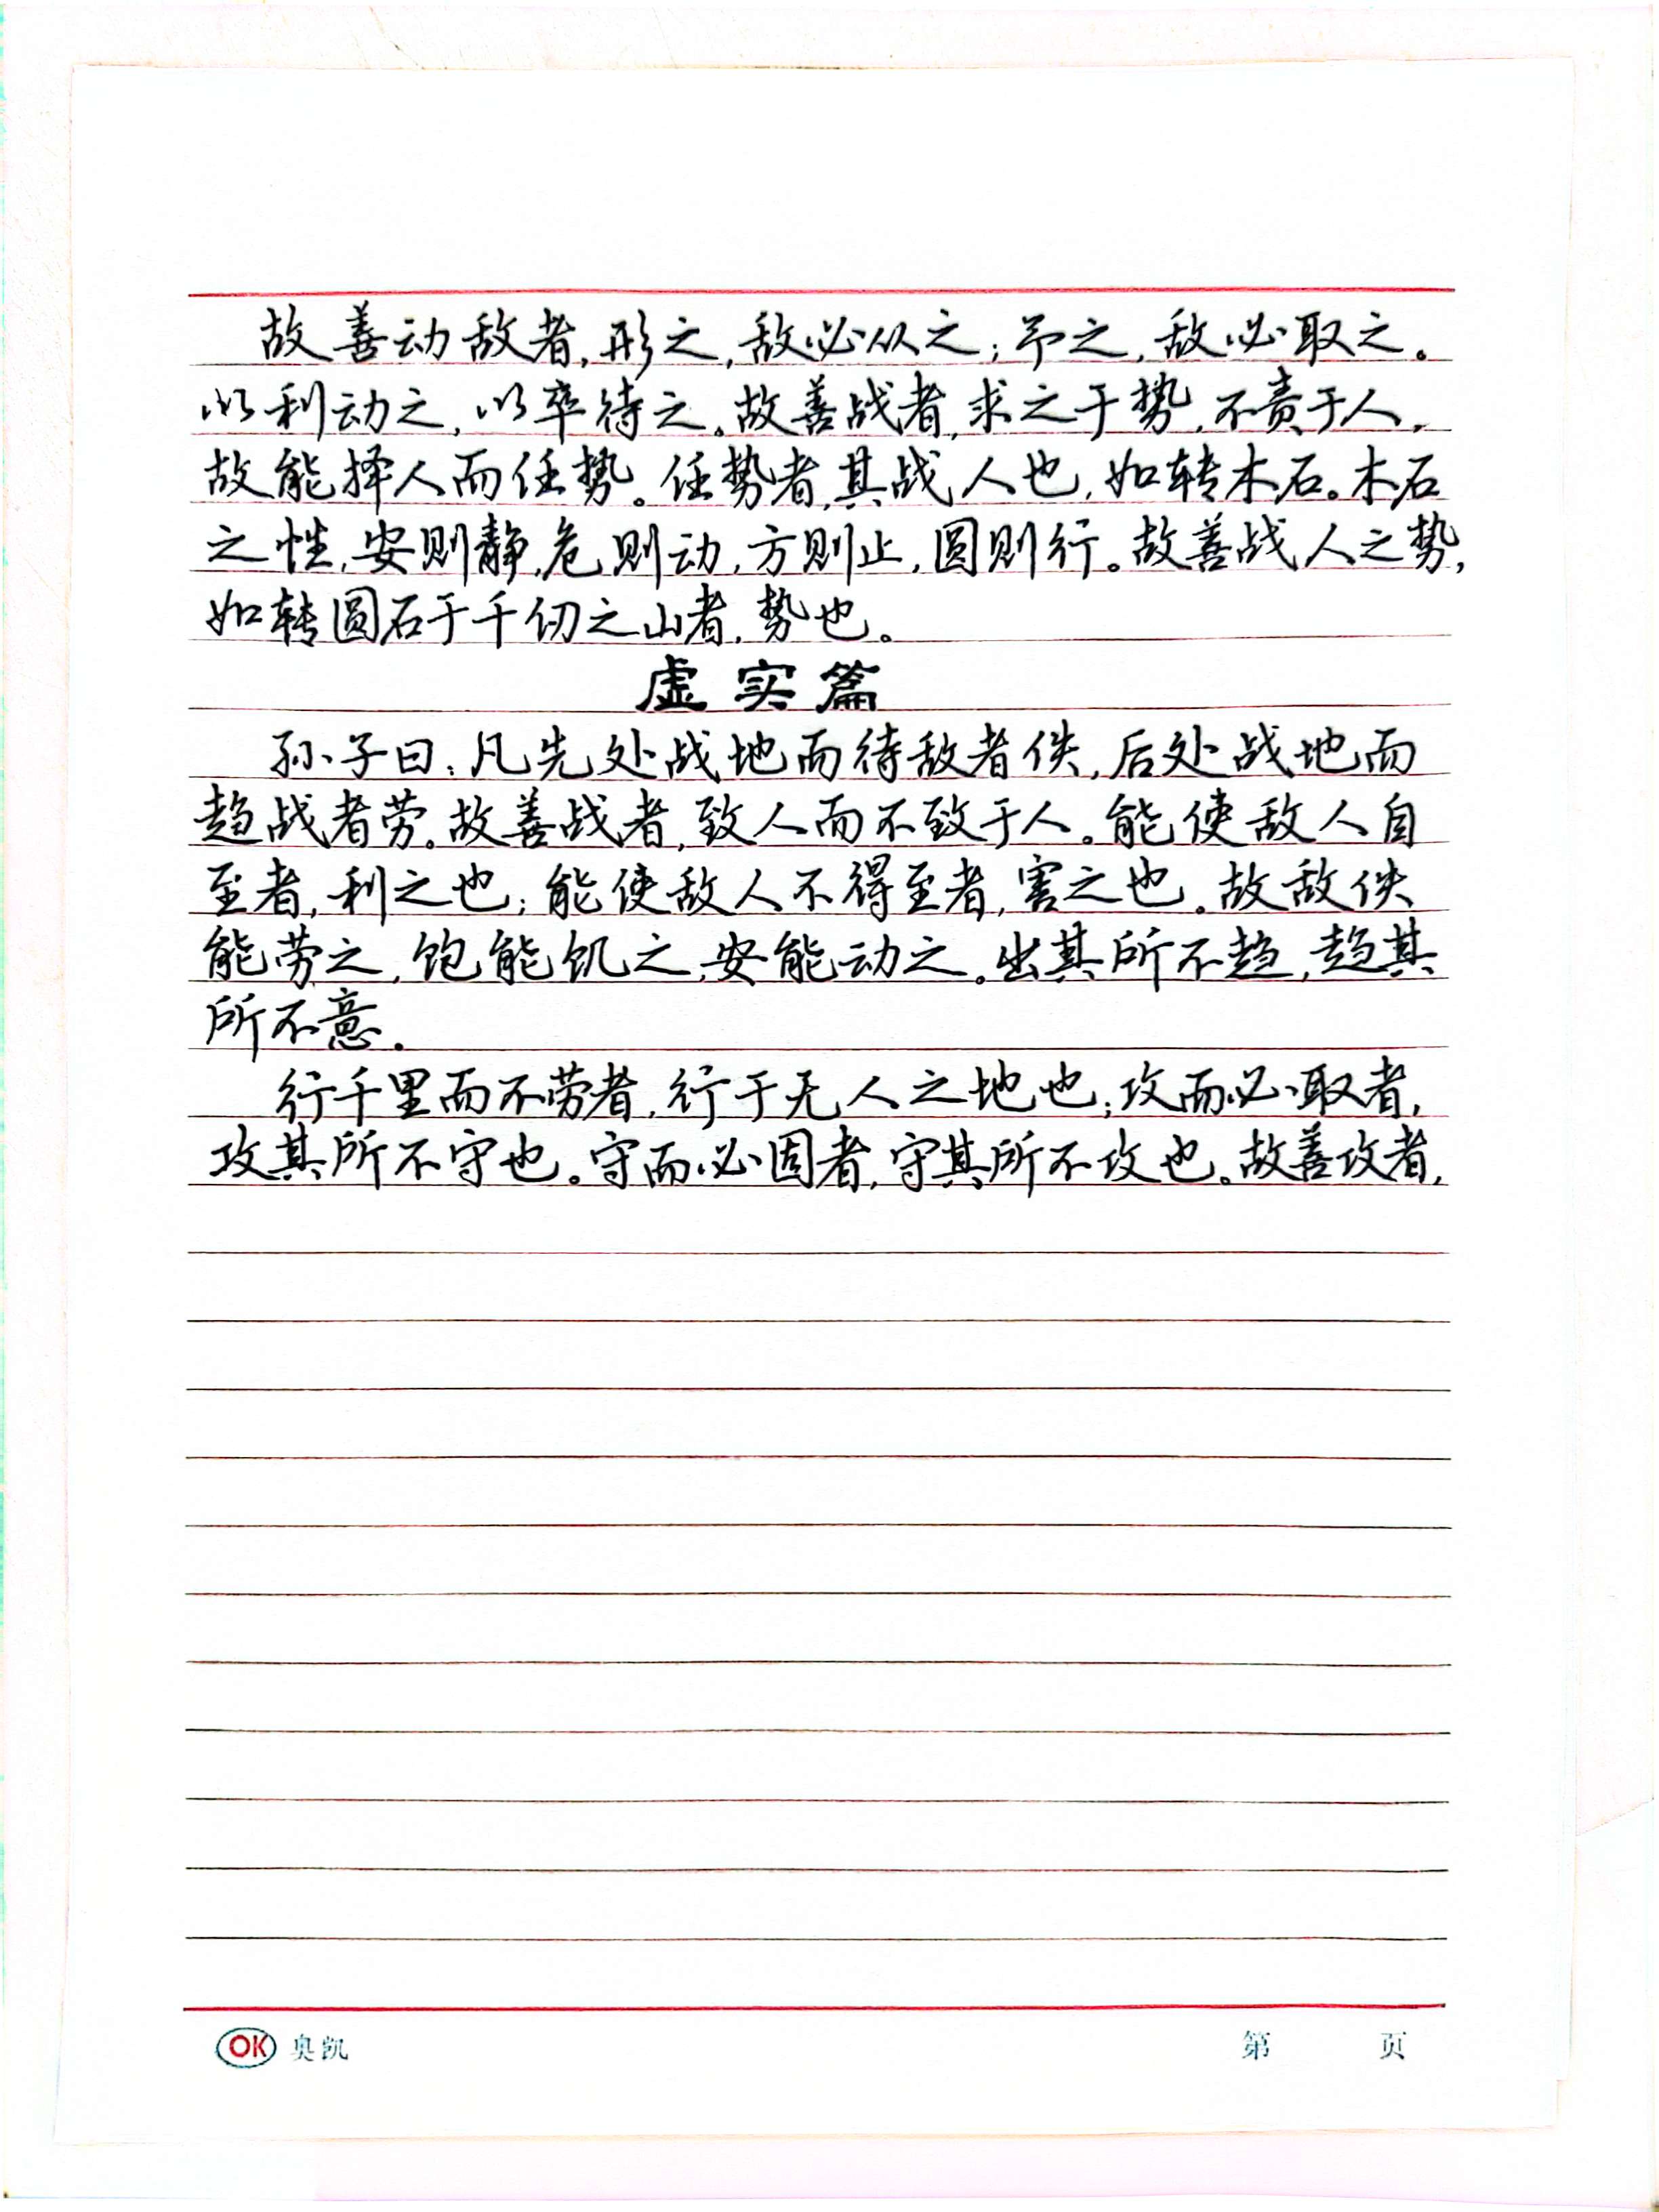 故善动敌者,形之,敌必从之;予之,敌必取之。
以利动之,以卒待之。故善战者,求之于势,不责于人,
故能择人而任势。任势者,其战人也,如转木石。木石
之性,安则静,危则动,方则止,圆则行。故善战人之势,
如转圆石于千仞之山者,势也。
虚实篇
孙子曰:凡先处战地而待敌者佚,后处战地而
趋战者劳。故善战者,致人而不致于人。能使敌人自
至者,利之也;能使敌人不得至者,害之也。故敌佚
能劳之,饱能饥之,安能动之。出其所不趋,趋其
所不意。
行千里而不劳者,行于无人之地也;攻而必取者,
攻其所不守也。守而必固者,守其所不攻也。故善攻者,
OK 奥凯
第 页